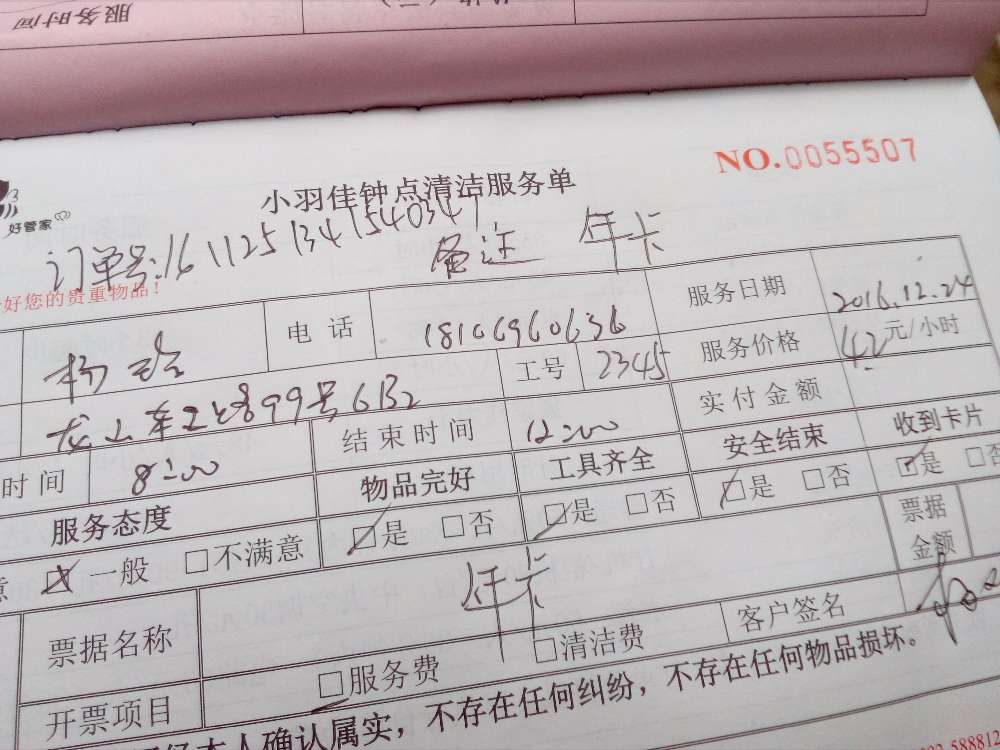 服务时间
NO.0055507
小羽佳钟点清洁服务单
好管家
订单号:161125134154034
备注 年卡
好您的贵重物品!
电话 18106960636 服务日期 2016.12.24
工号 2345 服务价格 42元/小时
99号6B2 实付金额
时间 8:00 结束时间 12:00 安全结束 收到卡片
服务态度 物品完好 工具齐全 □是 □否 ☑是 □否
☑一般 □不满意 ☑是 □否 ☑是 □否 票据金额
票据名称 年卡
开票项目 □服务费 □清洁费 客户签名
本人确认属实,不存在任何纠纷,不存在任何物品损坏。